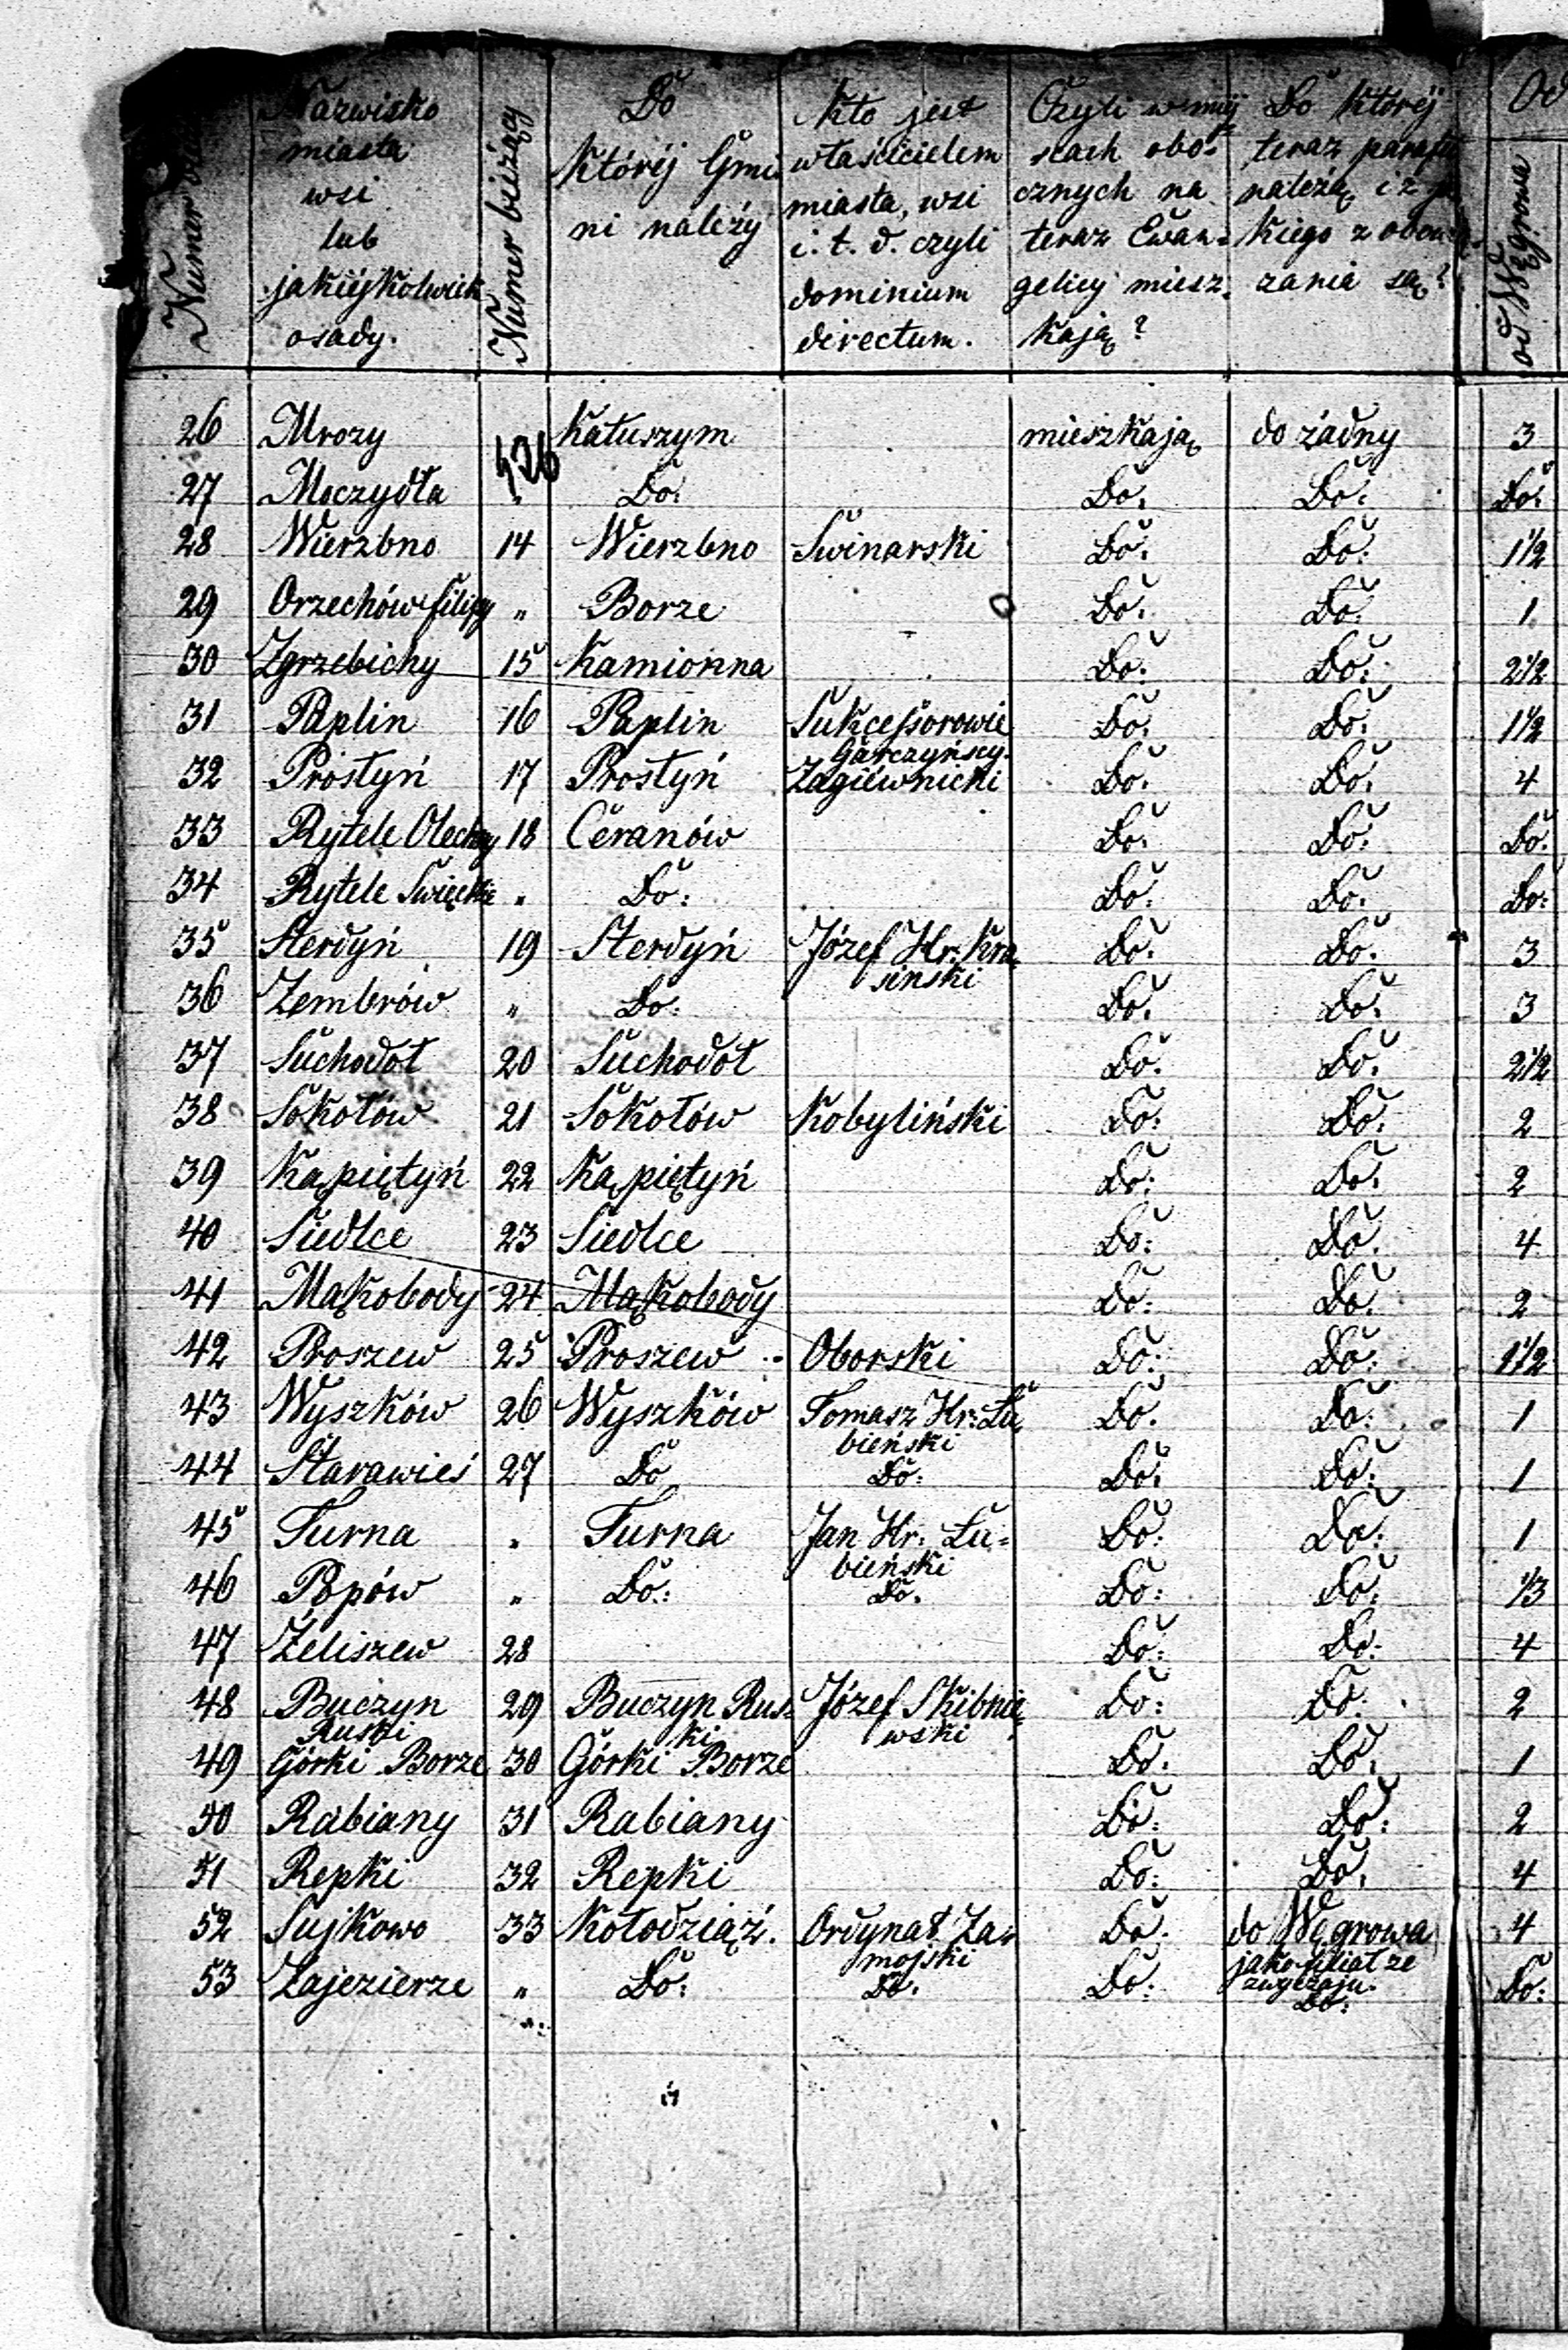 Numer
Nazwisko miasta wsi lub jakiéjkolwiek osady.
Numer bieżący
Do któréj Gmi ni należy
Kto jest właścicielem miasta, wsi i. t. d. czyli dominium directum.
Czyli w miéj scach obo= cznych na teraz Ewan= gelicy miesz= kają?
Do któréj teraz parafii należą i z kiego z obow zania są?
Od
od Węgrowa
26 Mrozy Kałuszym mieszkają do żadny 3
426
27 Moczydła " Do: Do: Do: Do:
28 Wierzbno 14 Wierzbno Swinarski Do: Do: 1 1/2
29 Orzechów Filipy " Borze Do: Do: 1
30 Zgrzebichy 15 Kamionna Do: Do: 2 1/2
31 Paplin 16 Paplin Sukcessorowie Do: Do: 1 1/2
Garczyńscy.
32 Prostyń 17 Prostyń Zagiéwnicki Do: Do: 4
33 Rytele Olechny 18 Ceranów Do: Do: Do:
34 Rytele Swięckie " Do: Do: Do: Do:
35 Sterdyń 19 Sterdyń Józef Hr: Kra= Do: Do: 3
sinski
36 Zembrów " Do: Do: Do: 3
37 Suchodół 20 Suchodół Do: Do: 2 1/2
38 Sokołów 21 Sokołów Kobyliński Do: Do: 2
39 Kąpiętyń 22 Kąpiętyń Do: Do: 2
40 Siedlce 23 Siedlce Do: Do: 4
41 Mąkobody 24 Mąkobody Do: Do: 2
42 Proszew 25 Proszew Oborski Do: Do: 1 1/2
43 Wyszków 26 Wyszków Tomasz Hr: Łu= Do: Do: 1
bieński
44 Starawieś 27 Do Do: Do: Do: 1
45 Turna " Turna Jan Hr: Łu= Do: Do: 1
bieński
46 Popów " Do: Do: Do: Do: 1/3
47 Żeliszew 28 Do: Do: 4
48 Buczyn 29 Buczyn Rus= Józef Skibnie= Do: Do: 2
Ruski ki wski
49 Górki Borze 30 Górki Borze Do: Do: 1
50 Rabiany 31 Rabiany Do: Do: 2
51 Repki 32 Repki Do: Do: 4
52 Sujkowo 33 Kołodziąż. Ordynat Za= Do: do Węgrowa 4
mojski jako filiał ze
zwyczaju.
53 Zajezierze " Do: Do: Do: Do: Do: